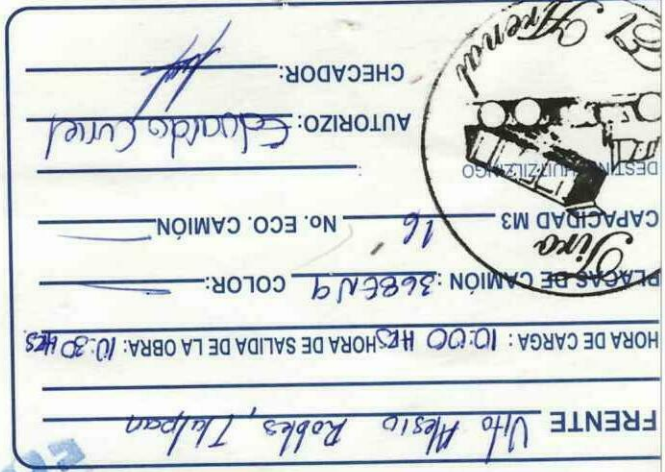 FRENTE Vito Alesio Robles, Tlalpan
HORA DE CARGA: 10:00 HRS HORA DE SALIDA DE LA OBRA: 10:30 HRS.
PLACAS DE CAMIÓN: 368EN9 COLOR:
CAPACIDAD M3 16 No. ECO. CAMIÓN
Tiro
DESTINO HUITZILZINGO
AUTORIZO: Eduardo Curiel
El Arenal
CHECADOR: